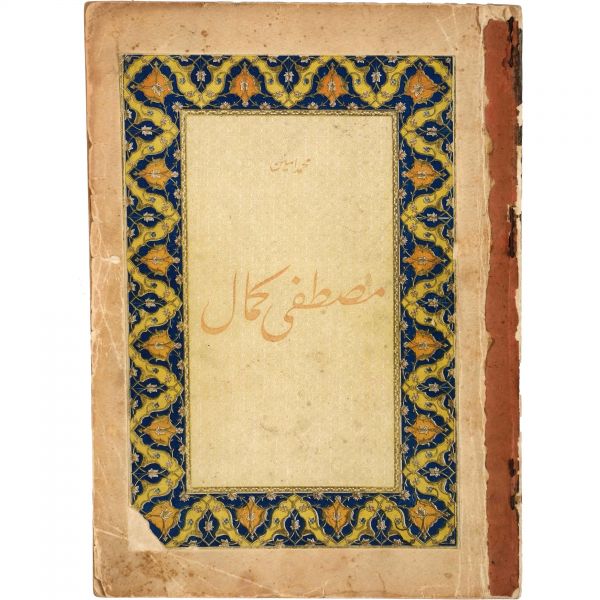 محمد امين
مصطفى كمال